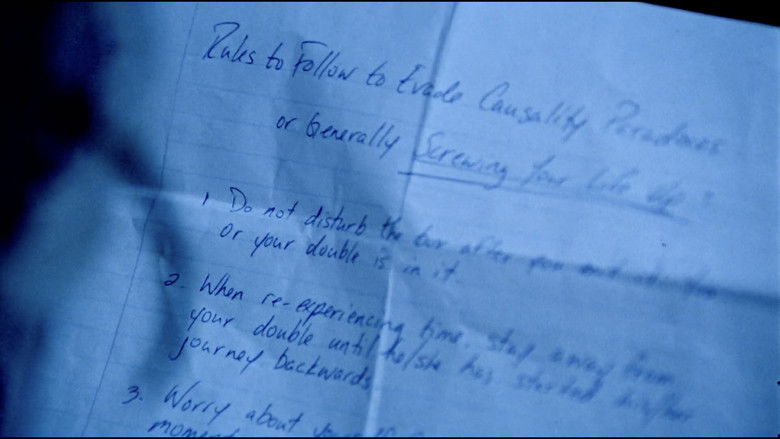 Rules to Follow to Evade Causality Paradoxes
or Generally Screwing Your Life Up:
1. Do not disturb the box after you
or your double is in it.
2. When re-experiencing time, stay away from
your double until he/she has started his/her
journey backwards.
3. Worry about
moment